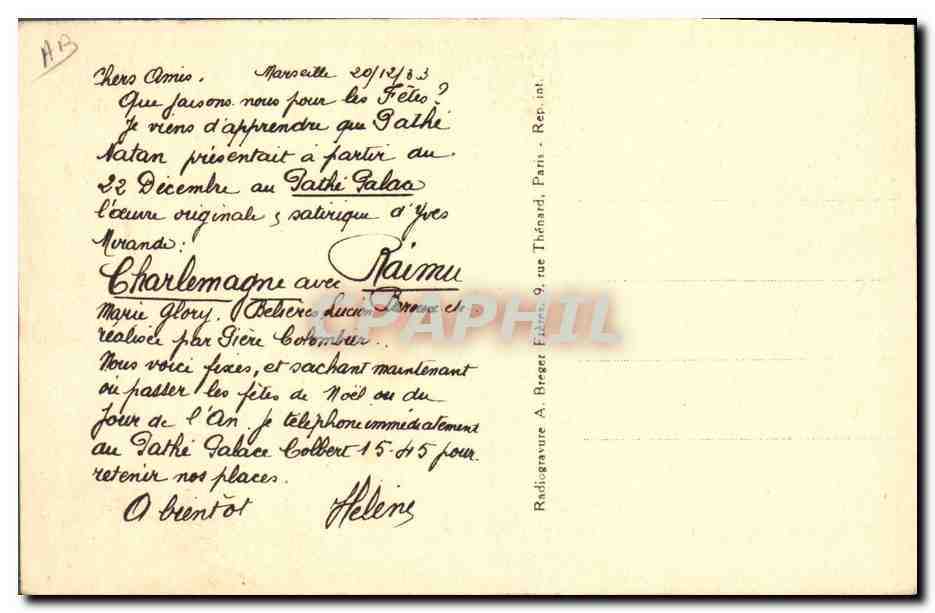 AB
Chers Amis. Marseille 20/12/33
Que faisons nous pour les Fêtes?
Je viens d'apprendre que Pathé
Natan présentait à partir du
22 Décembre au Pathé Palace
l'œuvre originale, satirique d'Yves
Mirande:
Charlemagne avec Raimu
Marie Glory, Belières, Lucien Baroux et
réalisée par Pière Colombier.
Nous voici fixés, et sachant maintenant
où passer les fêtes de Noël ou du
Jour de l'An. Je téléphone immédiatement
au Pathé Palace Colbert 15-45 pour
retenir nos places.
A bientôt Hélène
CPAPHIL
Radiogravure A. Breger Frères, 9, rue Thénard, Paris - Rep. int.